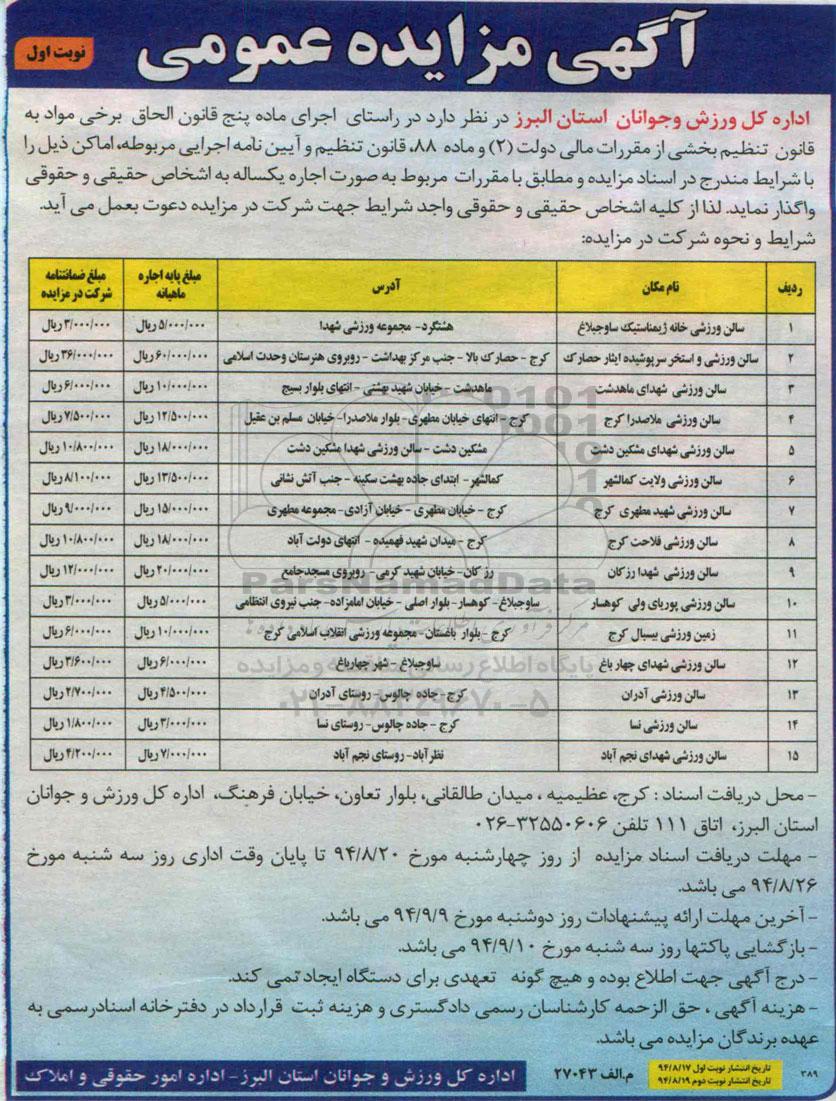 آگهی مزایده عمومی
نوبت اول
اداره کل ورزش وجوانان استان البرز در نظر دارد در راستای اجرای ماده پنج قانون الحاق برخی مواد به
قانون تنظیم بخشی از مقررات مالی دولت (۲) و ماده ۸۸، قانون تنظیم و آیین نامه اجرایی مربوطه، اماکن ذیل را
با شرایط مندرج در اسناد مزایده و مطابق با مقررات مربوط به صورت اجاره یکساله به اشخاص حقیقی و حقوقی
واگذار نماید. لذا از کلیه اشخاص حقیقی و حقوقی واجد شرایط جهت شرکت در مزایده دعوت بعمل می آید.
شرایط و نحوه شرکت در مزایده:
ردیف نام مکان آدرس مبلغ پایه اجاره ماهیانه مبلغ ضمانتنامه شرکت در مزایده
۱ سالن ورزشی خانه ژیمناستیک ساوجبلاغ هشتگرد- مجموعه ورزشی شهدا ۵/۰۰۰/۰۰۰ ریال ۳/۰۰۰/۰۰۰ ریال
۲ سالن ورزشی و استخر سرپوشیده ایثار حصارک کرج - حصارک بالا - جنب مرکز بهداشت - روبروی هنرستان وحدت اسلامی ۶۰/۰۰۰/۰۰۰ ریال ۳۶/۰۰۰/۰۰۰ ریال
۳ سالن ورزشی شهدای ماهدشت ماهدشت - خیابان شهید بهشتی - انتهای بلوار بسیج ۱۰/۰۰۰/۰۰۰ ریال ۶/۰۰۰/۰۰۰ ریال
۴ سالن ورزشی ملاصدرا کرج کرج - انتهای خیابان مطهری- بلوار ملاصدرا- خیابان مسلم بن عقیل ۱۲/۵۰۰/۰۰۰ ریال ۷/۵۰۰/۰۰۰ ریال
۵ سالن ورزشی شهدای مشکین دشت مشکین دشت - سالن ورزشی شهدا مشکین دشت ۱۸/۰۰۰/۰۰۰ ریال ۱۰/۸۰۰/۰۰۰ ریال
۶ سالن ورزشی ولایت کمالشهر کمالشهر- ابتدای جاده بهشت سکینه - جنب آتش نشانی ۱۳/۵۰۰/۰۰۰ ریال ۸/۱۰۰/۰۰۰ ریال
۷ سالن ورزشی شهید مطهری کرج کرج - خیابان مطهری - خیابان آزادی- مجموعه مطهری ۱۵/۰۰۰/۰۰۰ ریال ۹/۰۰۰/۰۰۰ ریال
۸ سالن ورزشی فلاحت کرج کرج - میدان شهید فهمیده - انتهای دولت آباد ۱۸/۰۰۰/۰۰۰ ریال ۱۰/۸۰۰/۰۰۰ ریال
۹ سالن ورزشی شهدا رزکان رزکان- خیابان شهید کرمی - روبروی مسجدجامع ۲۰/۰۰۰/۰۰۰ ریال ۱۲/۰۰۰/۰۰۰ ریال
۱۰ سالن ورزشی پوریای ولی کوهسار ساوجبلاغ - کوهسار- بلوار اصلی - خیابان امامزاده- جنب نیروی انتظامی ۵/۰۰۰/۰۰۰ ریال ۳/۰۰۰/۰۰۰ ریال
۱۱ زمین ورزشی بیسبال کرج کرج - بلوار باغستان- مجموعه ورزشی انقلاب اسلامی کرج ۱۰/۰۰۰/۰۰۰ ریال ۶/۰۰۰/۰۰۰ ریال
۱۲ سالن ورزشی شهدای چهار باغ ساوجبلاغ - شهر چهارباغ ۶/۰۰۰/۰۰۰ ریال ۳/۶۰۰/۰۰۰ ریال
۱۳ سالن ورزشی آدران کرج - جاده چالوس- روستای آدران ۴/۵۰۰/۰۰۰ ریال ۲/۷۰۰/۰۰۰ ریال
۱۴ سالن ورزشی نسا کرج - جاده چالوس- روستای نسا ۳/۰۰۰/۰۰۰ ریال ۱/۸۰۰/۰۰۰ ریال
۱۵ سالن ورزشی شهدای نجم آباد نظرآباد- روستای نجم آباد ۷/۰۰۰/۰۰۰ ریال ۴/۲۰۰/۰۰۰ ریال
ParsNamadData
پایگاه اطلاع رسانی مناقصه و مزایده
۰۲۱-۸۸۳۴۹۶۷۰-۵
- محل دریافت اسناد : کرج، عظیمیه ، میدان طالقانی، بلوار تعاون، خیابان فرهنگ، اداره کل ورزش و جوانان
استان البرز، اتاق ۱۱۱ تلفن ۳۲۵۵۰۶۰۶-۰۲۶
- مهلت دریافت اسناد مزایده از روز چهارشنبه مورخ ۹۴/۸/۲۰ تا پایان وقت اداری روز سه شنبه مورخ
۹۴/۸/۲۶ می باشد.
- آخرین مهلت ارائه پیشنهادات روز دوشنبه مورخ ۹۴/۹/۹ می باشد.
- بازگشایی پاکتها روز سه شنبه مورخ ۹۴/۹/۱۰ می باشد.
- درج آگهی جهت اطلاع بوده و هیچ گونه تعهدی برای دستگاه ایجاد نمی کند.
- هزینه آگهی ، حق الزحمه کارشناسان رسمی دادگستری و هزینه ثبت قرارداد در دفترخانه اسنادرسمی به
عهده برندگان مزایده می باشد.
۳۸۹
تاریخ انتشار نوبت اول ۹۴/۸/۱۷
تاریخ انتشار نوبت دوم ۹۴/۸/۱۹
م.الف ۲۷۰۴۳
اداره کل ورزش و جوانان استان البرز- اداره امور حقوقی و املاک